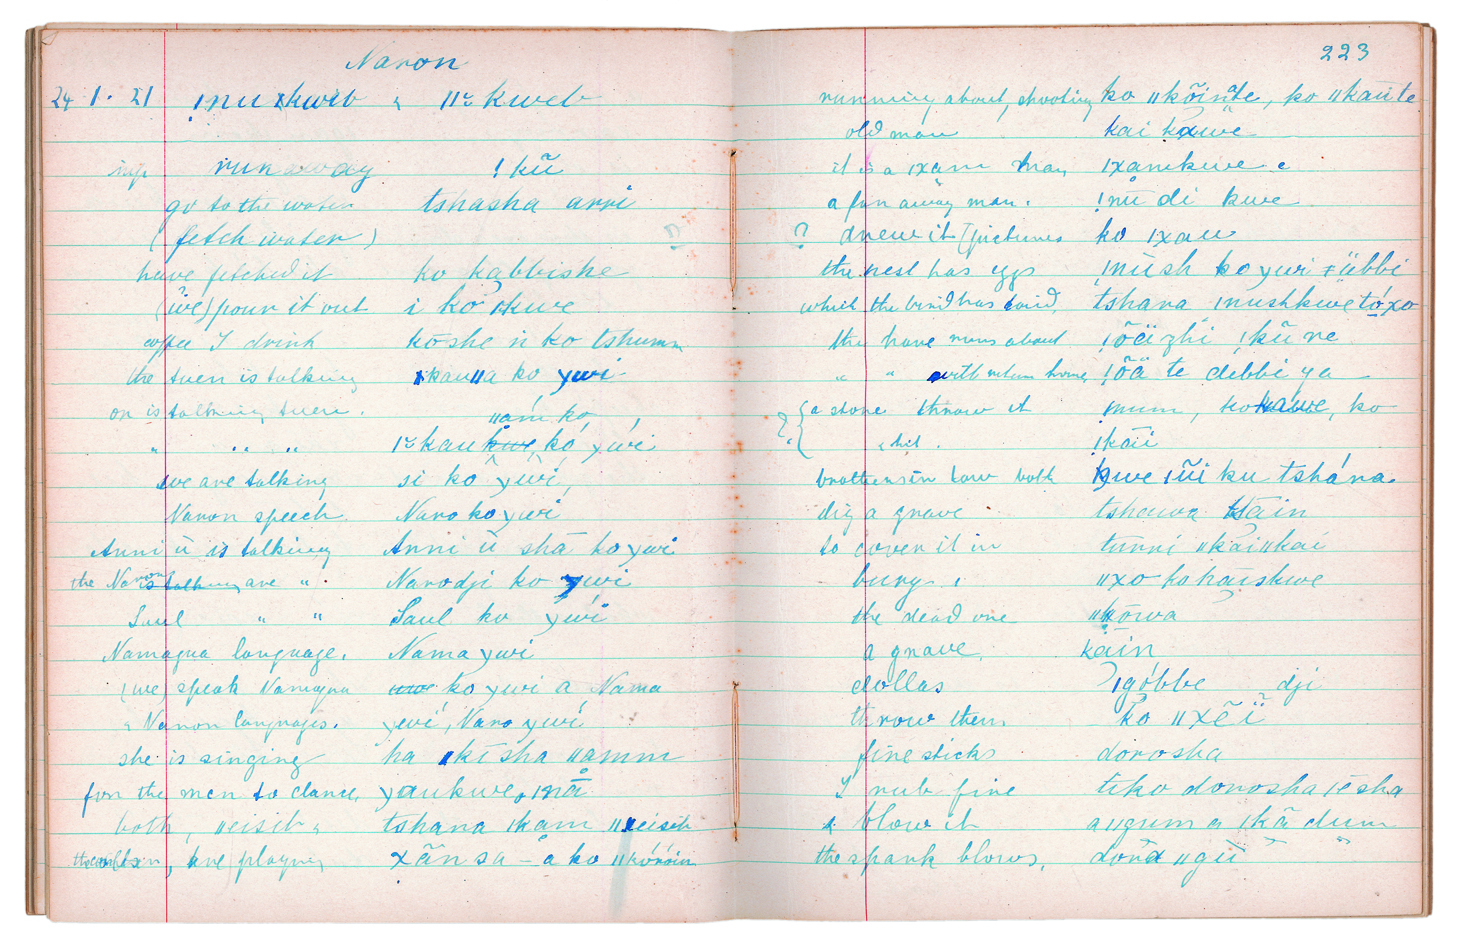 Naron
24 1. 21 ǃnu kweb & ǁkweb
imp run away ǃkũ
go to the water tshasha arri
(fetch water)
have fetched it ko kabbishe
(we) pour it out i ko kwe
coffee I drink kōshe ti ko tshumm
the tuen is talking ǀkauǁa ko ɣwi
on is talking tuen.
ǁam ko,
" " " kau kwe, kó ɣwi
we are talking si ko ɣwi,
Naron speech Naro ko ɣwi
Anni ū is talking Anni ū shā ko ɣwi
the Naron is talking are " Narodji ko ɣwi
Saul " " Saul ko ɣwi
Namaqua language. Nama ɣwi
(we) speak Namaqua ko ɣwi a Nama
& Naron languages. ɣwi, Naro ɣwi
she is singing ha kī sha ǁamm
for the men to dance, ɣaukwe, ǀnā
both, ǁeisib & tshana ǀkam ǁeisib
, are playing xãn sa – a ko ǁkóróin
223
running about, shooting ko ǁkõinte, ko ǁkaũte
old man kai kauwe
it is a ǀxam man ǀxamkwe e
a far away man. ǃnū di kwe
? drew it [pictures ko ǀxau
the nest has eggs ǀnūsh ko ɣwi ǂübbi
which the bird has laid, tshana ǀnushkwe tóxo
the have runs about ǃõëï zhi ǃkũ ne
" " will return home, ǃõä te dibbi ya
?{ a stone throw it ǀnum, ko kaúwe, ko
& hit. ǃkāi
brothers in law both kwe ǀūi ku tshána.
dig a grave tshauwa tsāin
to cover it in tunni ǁkaiǁkai
bury. ǁxo ko hāiskwe
the dead one ǁkōwa
a grave, kain
dollas ǀgóbbe dji
throw them ko ǁxẽï
fine sticks dorosha
I rub fine tiko dorosha ǀē sha
& blow it aǁgum a ǀkā dum
the spark blows, dorā ǁgū